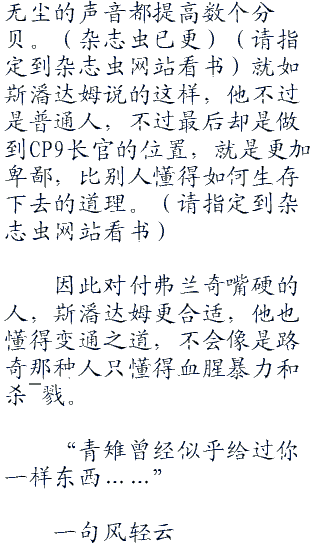 无尘的声音都提高数个分
贝。（杂志虫已更）（请指
定到杂志虫网站看书）就如
斯潘达姆说的这样，他不过
是普通人，不过最后却是做
到CP9长官的位置，就是更加
卑鄙，比别人懂得如何生存
下去的道理。（请指定到杂
志虫网站看书）
因此对付弗兰奇嘴硬的
人，斯潘达姆更合适，他也
懂得变通之道，不会像是路
奇那种人只懂得血腥暴力和
杀¯戮。
“青雉曾经似乎给过你
一样东西……”
一句风轻云